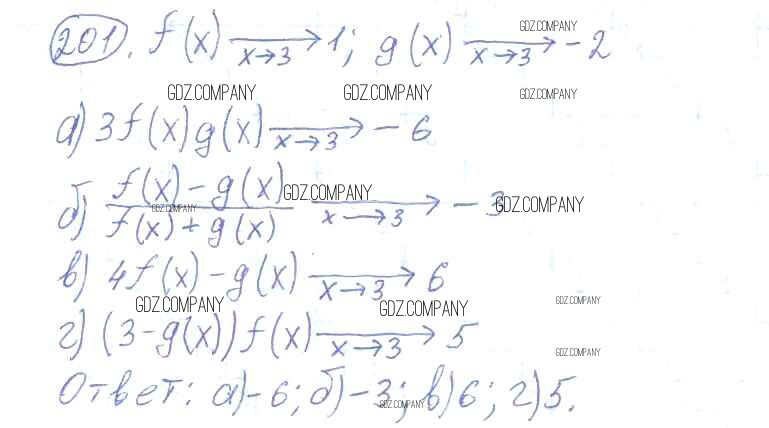 201. f(x) →x→3 1; g(x) →x→3 -2
GDZ.COMPANY
GDZ.COMPANY GDZ.COMPANY GDZ.COMPANY
а) 3f(x)g(x) →x→3 -6
б) (f(x)-g(x))/(f(x)+g(x)) →x→3 -3
GDZ.COMPANY GDZ.COMPANY GDZ.COMPANY
в) 4f(x)-g(x) →x→3 6
GDZ.COMPANY GDZ.COMPANY GDZ.COMPANY
г) (3-g(x))f(x) →x→3 5
GDZ.COMPANY
Ответ: а)-6; б)-3; в)6; г)5.
GDZ.COMPANY